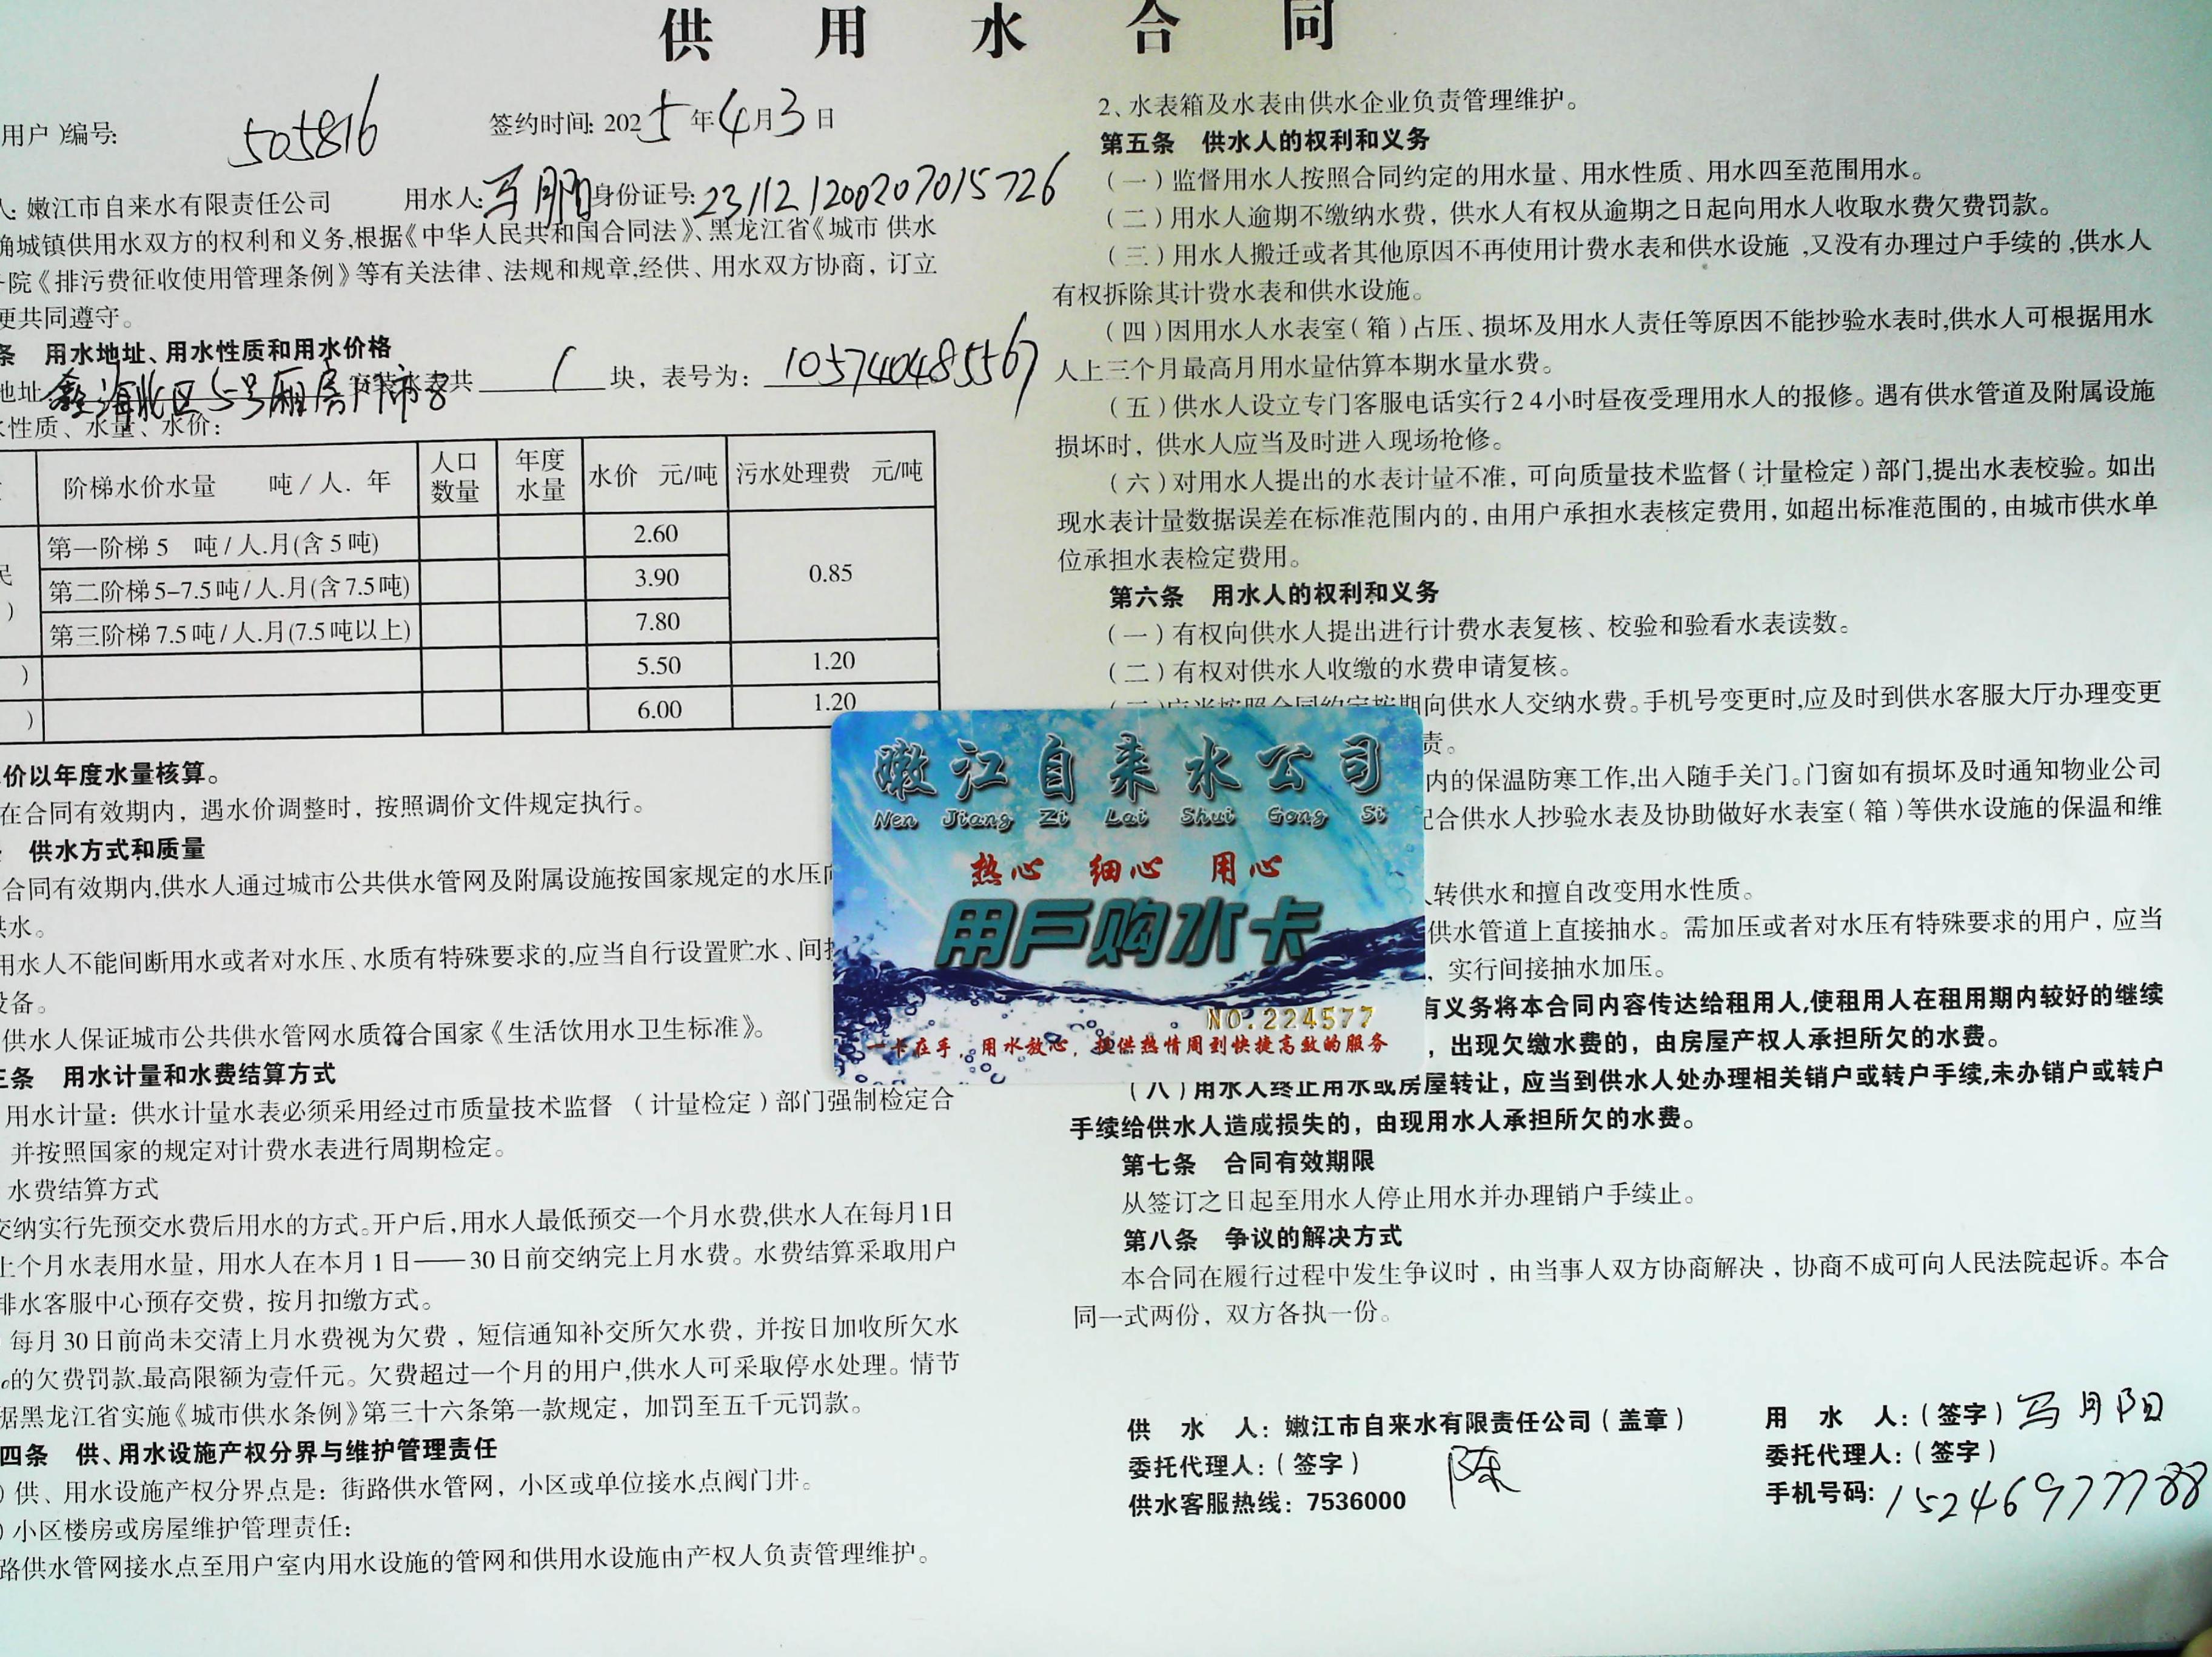 供用水合同
用户）编号: 505816 签约时间: 2025年4月3日
人: 嫩江市自来水有限责任公司 用水人: 马月阳 身份证号: 231121200207015726
确城镇供用水双方的权利和义务,根据《中华人民共和国合同法》、黑龙江省《城市 供水
院《排污费征收使用管理条例》等有关法律、法规和规章,经供、用水双方协商, 订立
更共同遵守。
条 用水地址、用水性质和用水价格
地址 海北区5号厢房门市 安装水表共 1 块, 表号为: 105740485567
水性质、水量、水价:
阶梯水价水量 吨/人. 年 人口数量 年度水量 水价 元/吨 污水处理费 元/吨
民 第一阶梯 5 吨/人.月(含 5 吨) 2.60 0.85
第二阶梯 5-7.5吨/人.月(含7.5吨) 3.90
) 第三阶梯 7.5吨/人.月(7.5吨以上) 7.80
) 5.50 1.20
) 6.00 1.20
价以年度水量核算。
在合同有效期内, 遇水价调整时, 按照调价文件规定执行。
供水方式和质量
合同有效期内,供水人通过城市公共供水管网及附属设施按国家规定的水压向
供水。
用水人不能间断用水或者对水压、水质有特殊要求的,应当自行设置贮水、间
设备。
供水人保证城市公共供水管网水质符合国家《生活饮用水卫生标准》。
三条 用水计量和水费结算方式
用水计量: 供水计量水表必须采用经过市质量技术监督 (计量检定)部门强制检定合
并按照国家的规定对计费水表进行周期检定。
水费结算方式
交纳实行先预交水费后用水的方式。开户后,用水人最低预交一个月水费,供水人在每月1日
上个月水表用水量, 用水人在本月1日——30日前交纳完上月水费。水费结算采取用户
排水客服中心预存交费, 按月扣缴方式。
每月30日前尚未交清上月水费视为欠费, 短信通知补交所欠水费, 并按日加收所欠水
的欠费罚款,最高限额为壹仟元。欠费超过一个月的用户,供水人可采取停水处理。情节
据黑龙江省实施《城市供水条例》第三十六条第一款规定, 加罚至五千元罚款。
四条 供、用水设施产权分界与维护管理责任
) 供、用水设施产权分界点是: 街路供水管网, 小区或单位接水点阀门井。
) 小区楼房或房屋维护管理责任:
路供水管网接水点至用户室内用水设施的管网和供用水设施由产权人负责管理维护。
2、水表箱及水表由供水企业负责管理维护。
第五条 供水人的权利和义务
(一)监督用水人按照合同约定的用水量、用水性质、用水四至范围用水。
(二)用水人逾期不缴纳水费, 供水人有权从逾期之日起向用水人收取水费欠费罚款。
(三)用水人搬迁或者其他原因不再使用计费水表和供水设施 ,又没有办理过户手续的,供水人
有权拆除其计费水表和供水设施。
(四)因用水人水表室(箱)占压、损坏及用水人责任等原因不能抄验水表时,供水人可根据用水
人上三个月最高月用水量估算本期水量水费。
(五)供水人设立专门客服电话实行24小时昼夜受理用水人的报修。遇有供水管道及附属设施
损坏时, 供水人应当及时进入现场抢修。
(六)对用水人提出的水表计量不准, 可向质量技术监督(计量检定)部门,提出水表校验。如出
现水表计量数据误差在标准范围内的, 由用户承担水表核定费用, 如超出标准范围的, 由城市供水单
位承担水表检定费用。
第六条 用水人的权利和义务
(一)有权向供水人提出进行计费水表复核、校验和验看水表读数。
(二)有权对供水人收缴的水费申请复核。
(三)应当按照合同约定按期向供水人交纳水费。手机号变更时,应及时到供水客服大厅办理变更
责。
内的保温防寒工作,出入随手关门。门窗如有损坏及时通知物业公司
配合供水人抄验水表及协助做好水表室(箱)等供水设施的保温和维
人转供水和擅自改变用水性质。
供水管道上直接抽水。需加压或者对水压有特殊要求的用户, 应当
, 实行间接抽水加压。
有义务将本合同内容传达给租用人,使租用人在租用期内较好的继续
, 出现欠缴水费的, 由房屋产权人承担所欠的水费。
(八)用水人终止用水或房屋转让, 应当到供水人处办理相关销户或转户手续,未办销户或转户
手续给供水人造成损失的, 由现用水人承担所欠的水费。
第七条 合同有效期限
从签订之日起至用水人停止用水并办理销户手续止。
第八条 争议的解决方式
本合同在履行过程中发生争议时, 由当事人双方协商解决, 协商不成可向人民法院起诉。本合
同一式两份, 双方各执一份。
供 水 人: 嫩江市自来水有限责任公司(盖章)
委托代理人:(签字) 陈
供水客服热线: 7536000
用 水 人:(签字) 马月阳
委托代理人:(签字)
手机号码: 15246977788
嫩江自来水公司
Nen Jiang Zi Lai Shui Gong Si
热心 细心 用心
用户购水卡
NO.224577
一卡在手, 用水放心, 提供热情周到快捷高效的服务